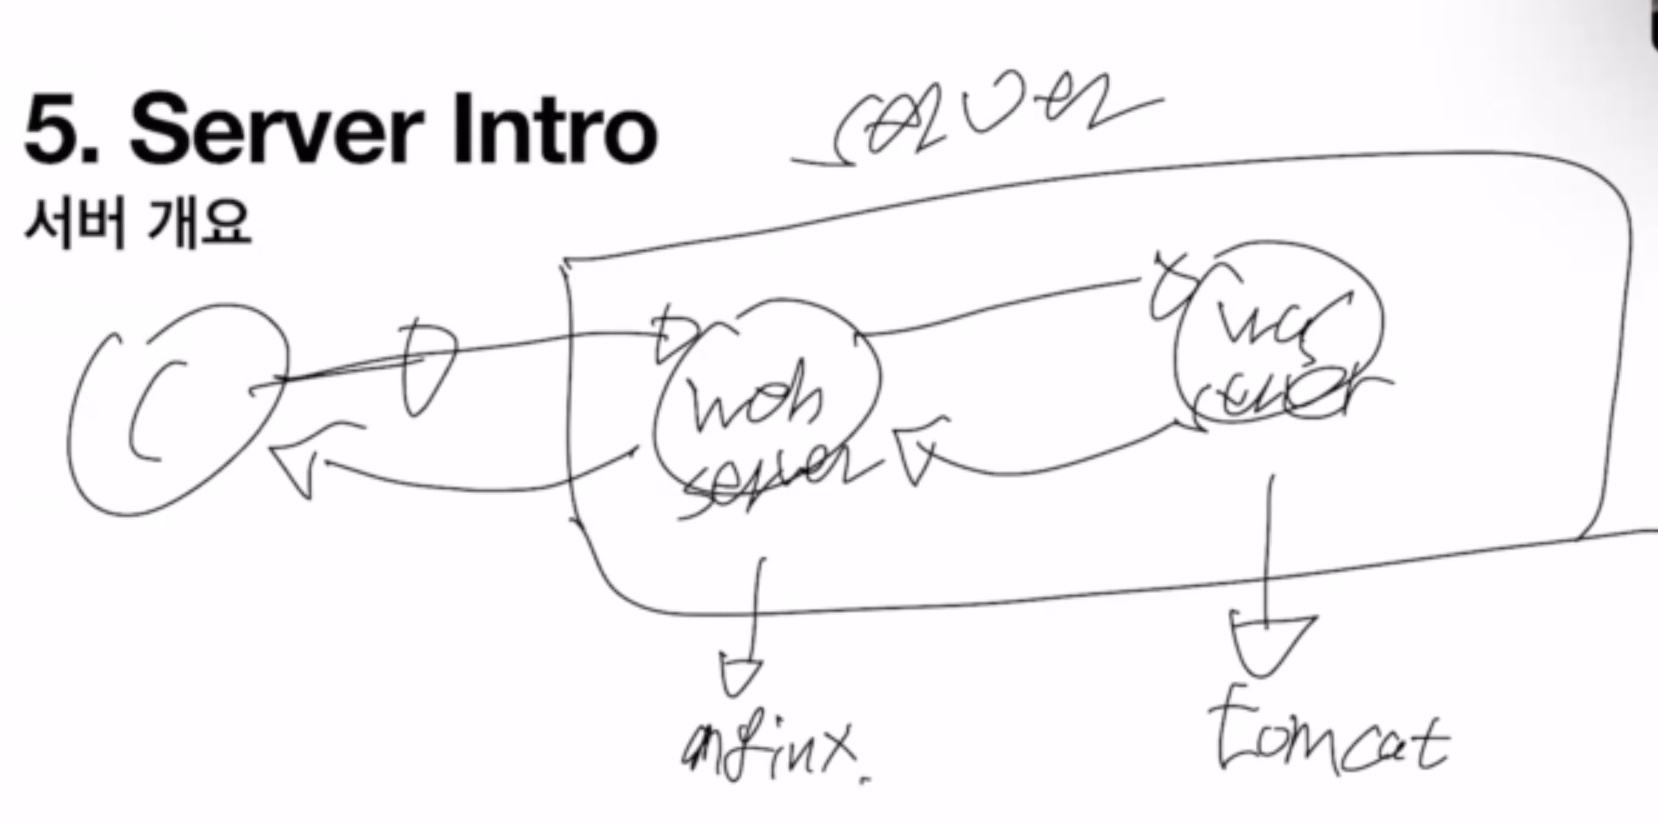 5. Server Intro
서버 개요
server
C
web
server
was
server
nginx.
tomcat